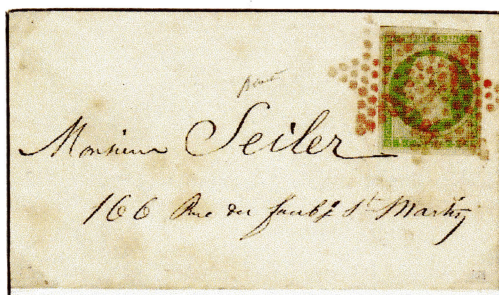 Monsieur Seiler
166 Rue du faubg St Martin